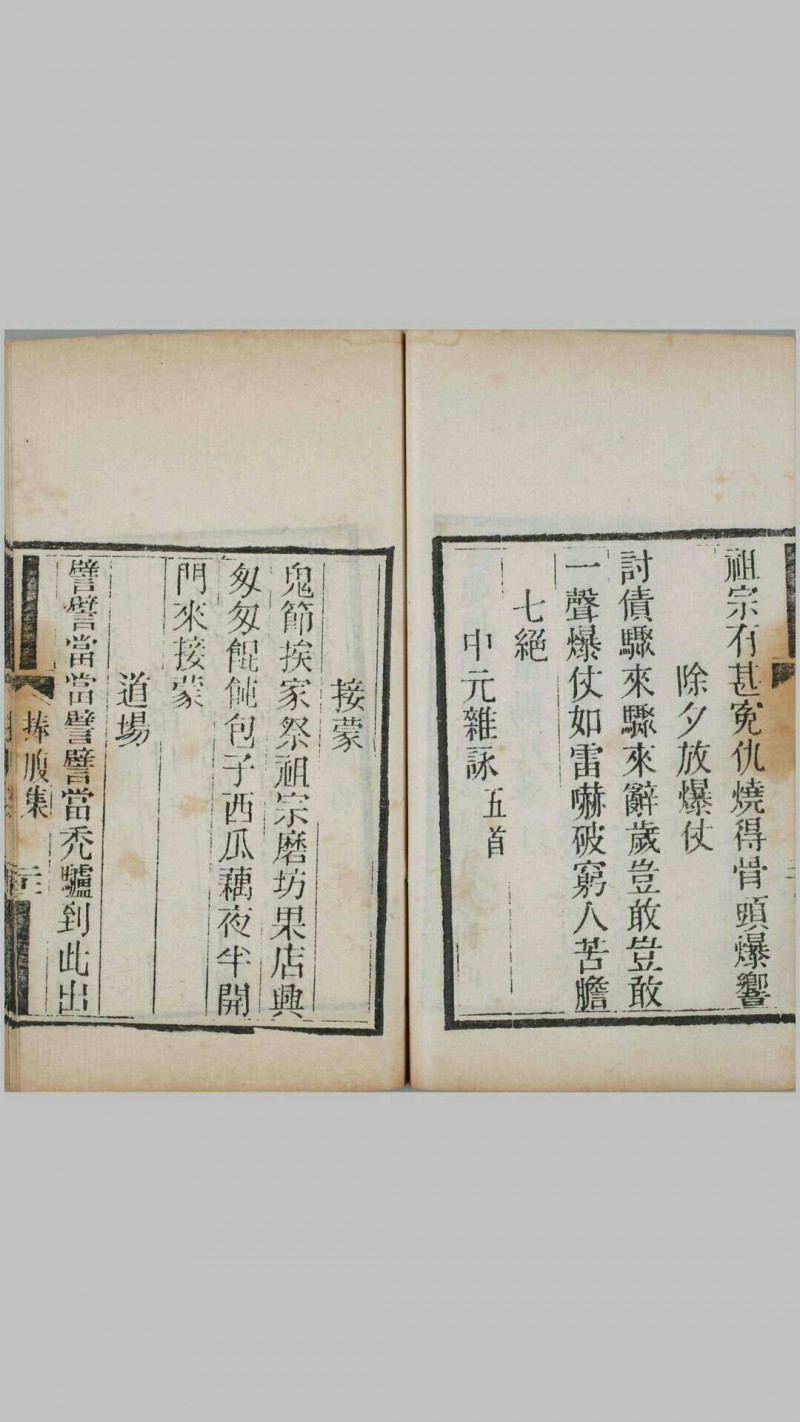 祖宗有甚冤仇燒得骨頭爆響
除夕放爆仗
討債驟來驟來辭歲豈敢豈敢
一聲爆仗如雷嚇破窮人苦膽
七絕
中元雜詠五首
接蒙
鬼節挨家祭祖宗磨坊果店興
匆匆餛飩包子西瓜藕夜半開
門來接蒙
道場
譬譬當當譬譬當禿驢到此出
捧腹集